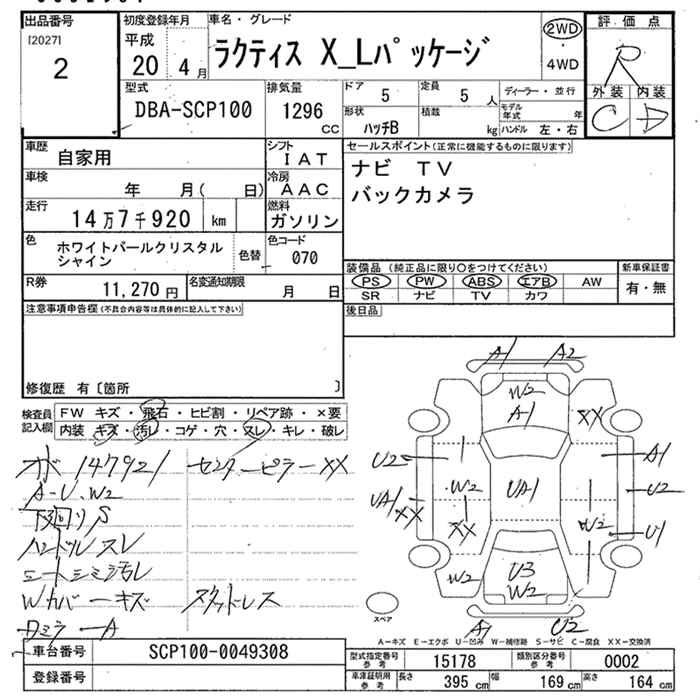 出品番号
[2027]
2
初度登録年月
平成
20 年 4 月
車名・グレード
ラクティス X_Lパッケージ
2WD
・
4WD
評価点
R
外装 内装
C D
型式
DBA-SCP100
排気量
1296
CC
ドア 5
定員 5 人
ディーラー・並行
形状
ハッチB
積載 kg
モデル年式 年
ハンドル 左・右
車歴 自家用
シフト
IAT
セールスポイント(正常に機能するものに限ります)
ナビ TV
バックカメラ
車検 年 月( 日)
冷房
AAC
走行 14万7千920 km
燃料
ガソリン
色 ホワイトパールクリスタル
シャイン
色替
色コード
070
装備品 (純正品に限り○をつけてください)
新車保証書
PS PW ABS エアB AW
SR ナビ TV カワ
有・無
R券 11,270 円
名変通知期限 月 日
注意事項申告欄(不具合内容等は具体的に記入して下さい)
後日品
修復歴 有〔箇所 〕
検査員
記入欄
FW キズ・飛石・ヒビ割・リペア跡・×要
内装 キズ・汚レ・コゲ・穴・スレ・キレ・破レ
メーター 147921 センターピラーXX
A-U.W2
下廻りS
ハンドルスレ
シートシミ汚レ
Wカバーキズ スタッドレス
ロミラーA
A1 A2
W2
A1
XX
U2
A1
W2
UA1
U2
UA1
XX
XX
W2
U1
W2
U3
W2
A1 U2
スペア
A-キズ E-エクボ U-凹み W-補修跡 S-サビ C-腐食 XX-交換済
車台番号 SCP100-0049308
登録番号
型式指定番号
参考
15178
類別区分番号
参考
0002
車庫証明用
参考
長さ 395 cm
幅 169 cm
高さ 164 cm